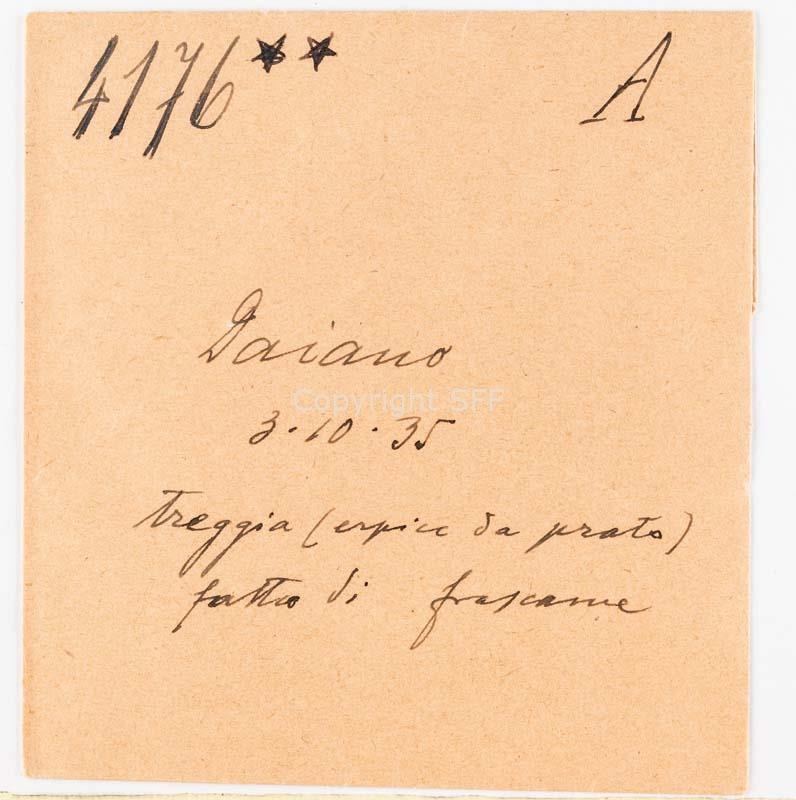 4176** A
Daiano
Copyright SFF
3·10·35
treggia (erpice da prato)
fatto di frascame